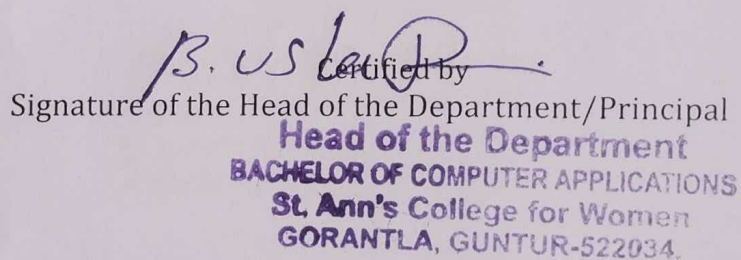 B. US
Certified by
Signature of the Head of the Department/Principal
Head of the Department
BACHELOR OF COMPUTER APPLICATIONS
St. Ann's College for Women
GORANTLA, GUNTUR-522034.